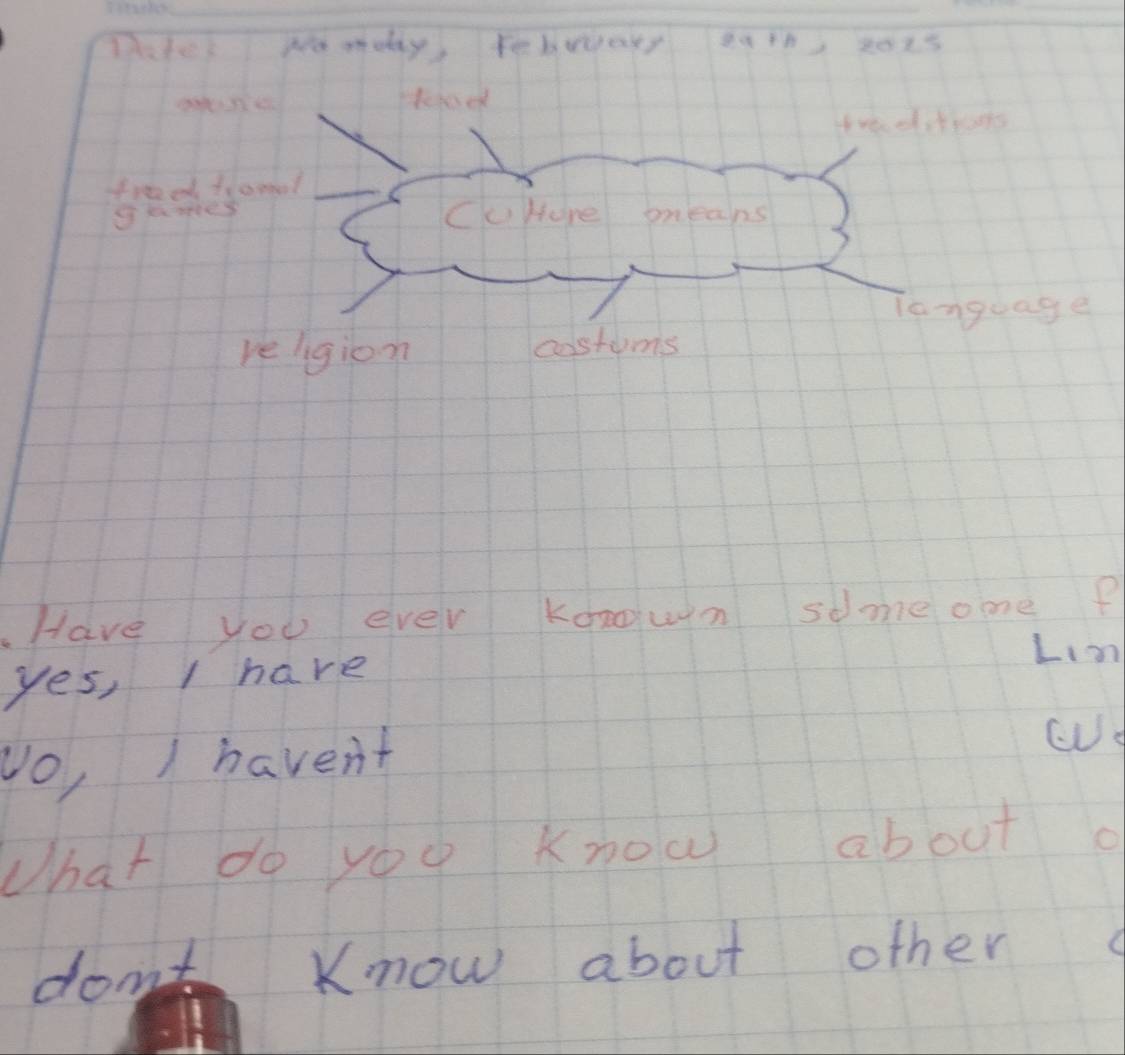 Date: Monday, February 24th, 2025
music food
traditions
traditional
games
Culture means
language
religion costums
. Have you ever known someone f
yes, I have
Lin
No, I havent
cu
What do you know about o
dont know about other c